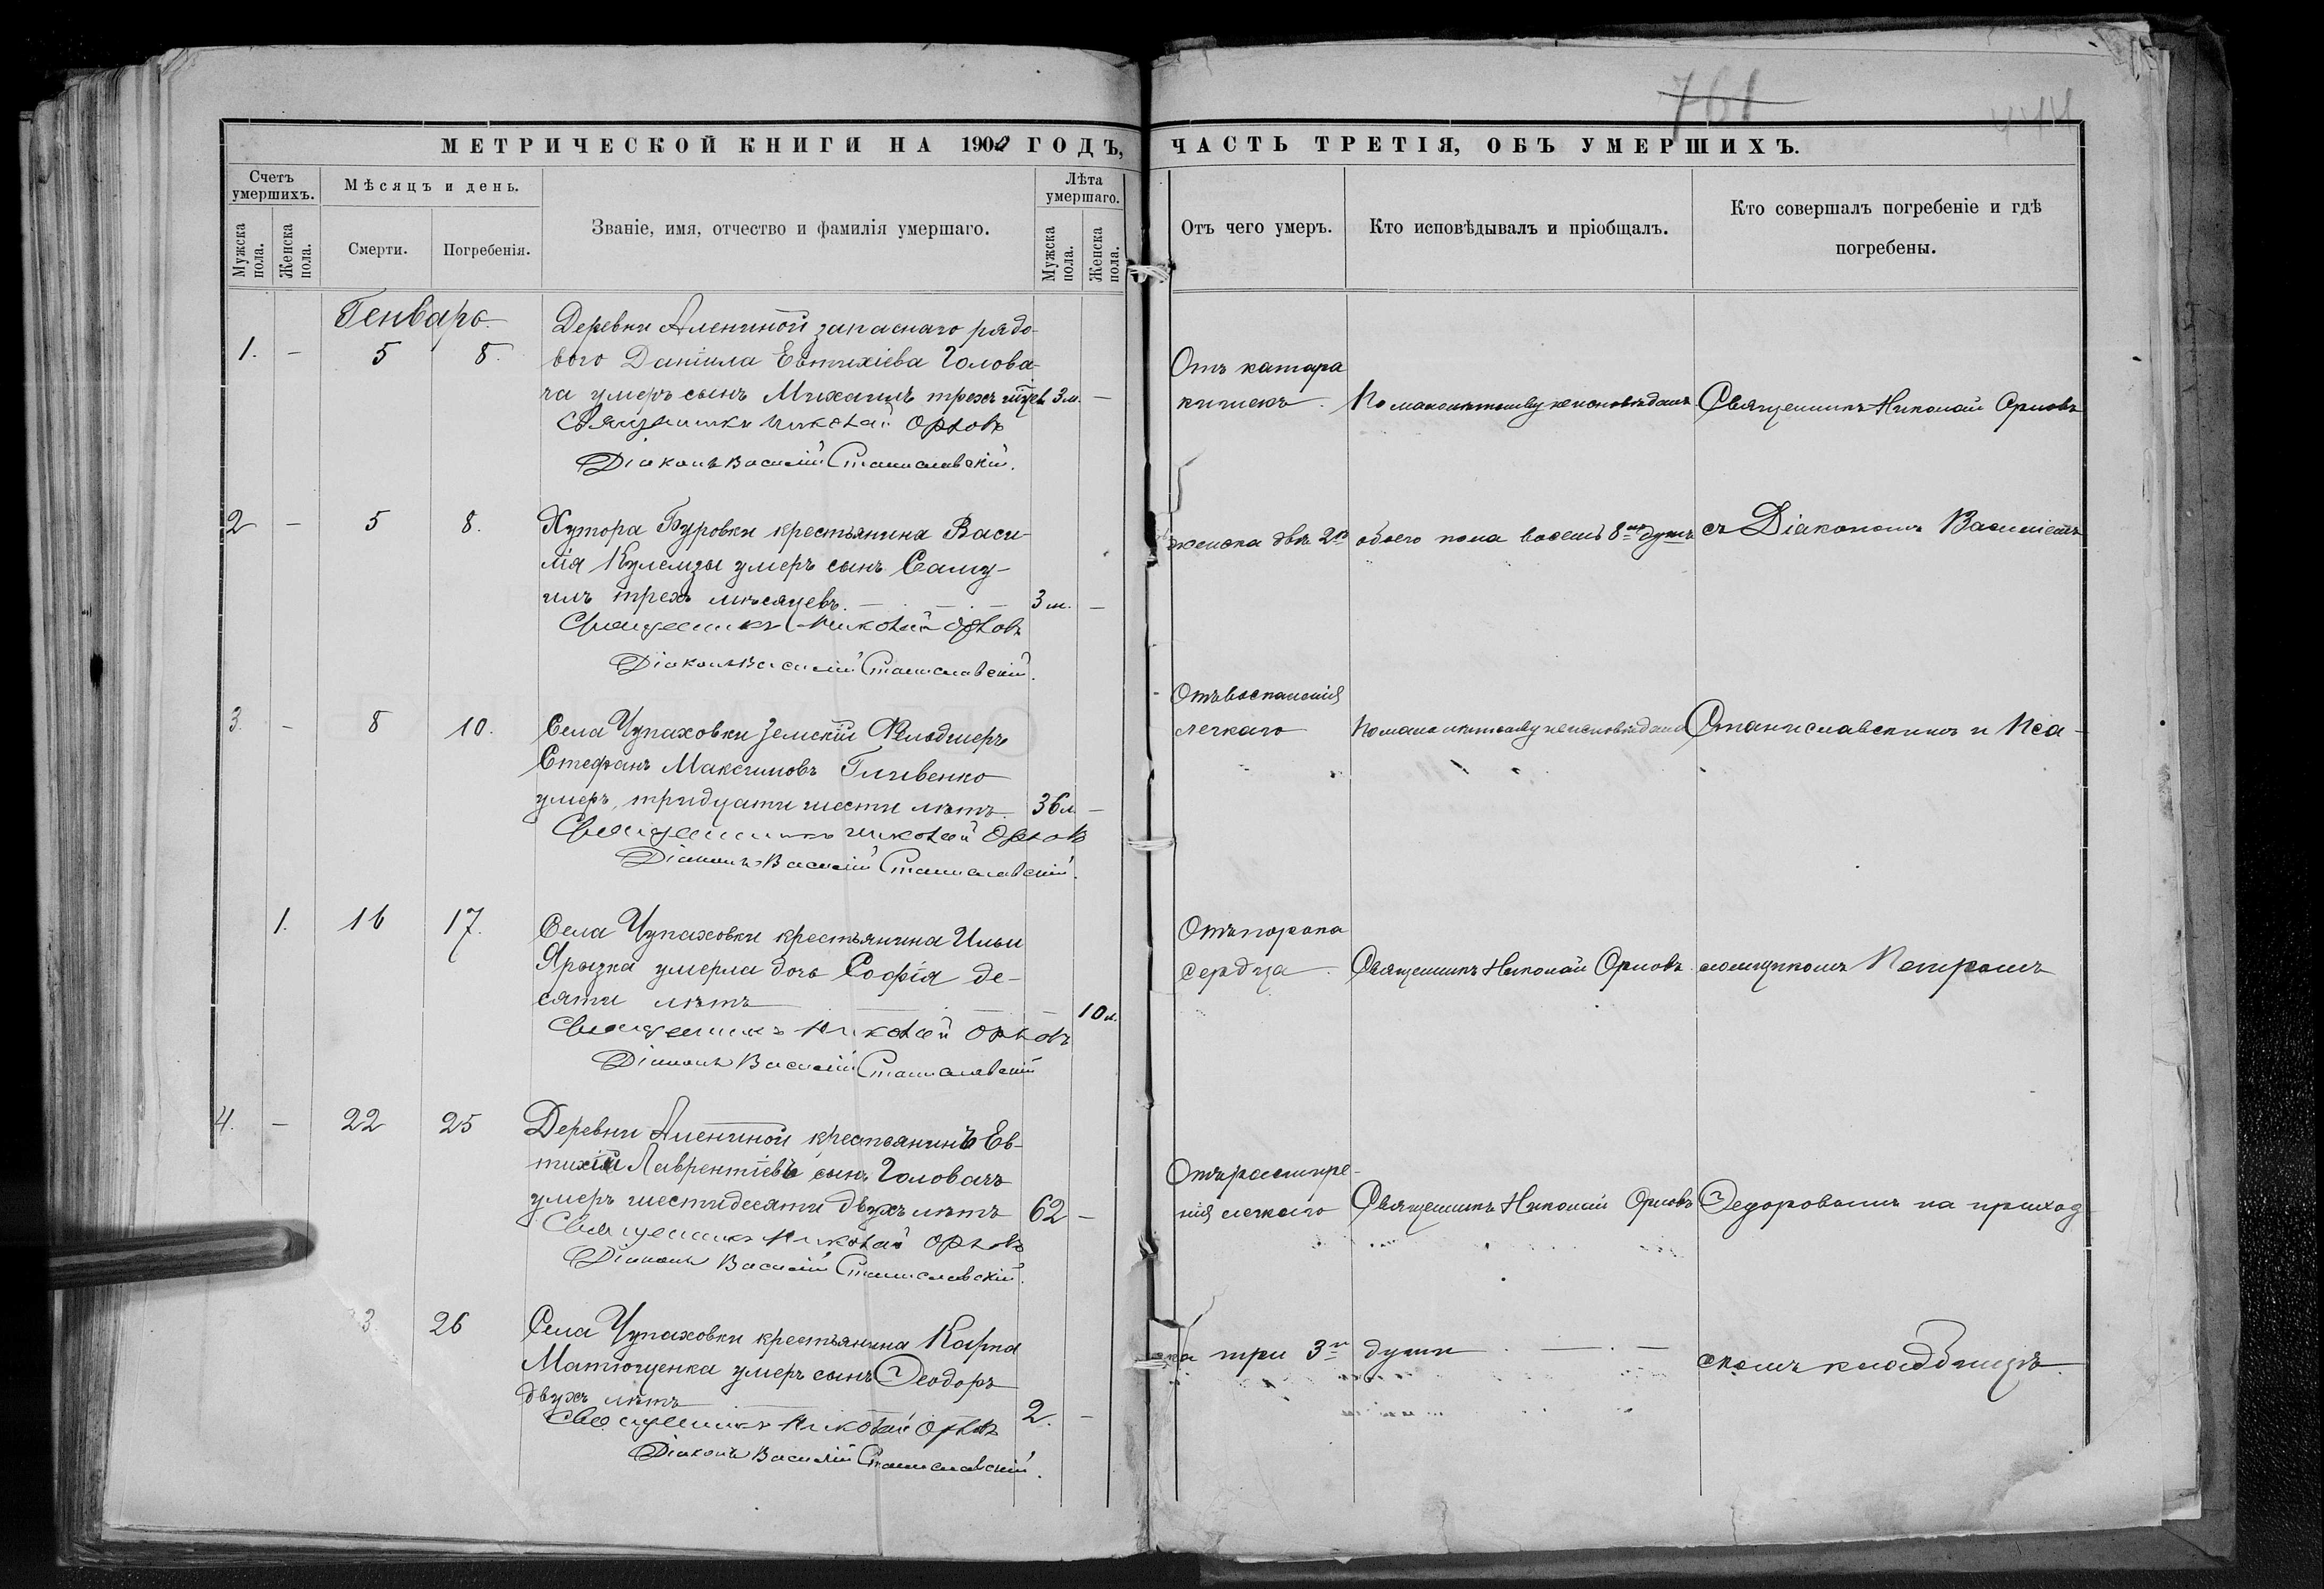 761
444
МЕТРИЧЕСКОЙ КНИГИ НА 1902 ГОДЪ,
ЧАСТЬ ТРЕТІЯ, ОБЪ УМЕРШИХЪ.
Счетъ умершихъ.
Мѣсяцъ и день.
Званіе, имя, отчество и фамилія умершаго.
Лѣта умершаго.
Мужска пола.
Женска пола.
Смерти.
Погребенія.
Мужска пола.
Женска пола.
Отъ чего умеръ.
Кто исповѣдывалъ и пріобщалъ.
Кто совершалъ погребеніе и гдѣ
погребены.
Генварь
1. - 5 8.
Деревни Алениной запаснаго рядо-
вого Даніила Евтихіева Голова-
ча умеръ сынъ Михаилъ трехъ 3 м. -
Священникъ Николай Орловъ
Діаконъ Василій Станиславскій.
Отъ катара
кишекъ.
По малолѣтству неисповѣданъ
Священникъ Николай Орловъ
2 - 5 8.
Хутора Буровки крестьянина Васи-
лія Кулемзы умеръ сынъ Саму-
илъ трехъ мѣсяцевъ. 3 м. -
Священникъ Николай Орловъ
Діаконъ Василій Станиславскій.
женска двѣ 2
обоего пола восемь 8 душъ
съ Діакономъ Василіемъ
3. - 8 10.
Села Чупаховки Земскій Фельдшеръ
Стефанъ Максимовъ Гливенко
умеръ, тридцати шести лѣтъ 36 л. -
Священникъ Николай Орловъ
Діаконъ Василій Станиславскій.
Отъ воспаленія
легкаго
По малолѣтству неисповѣданъ
Станиславскимъ и Пса-
1. 16 17.
Села Чупаховки крестьянина Ильи
Ярызка умерла дочь Софія де-
сяти лѣтъ 10 л.
Священникъ Николай Орловъ
Діаконъ Василій Станиславскій
Отъ порока
сердца.
Священникъ Николай Орловъ
ломщикомъ Петромъ
4. - 22 25
Деревни Алениной крестьянинъ Ев-
тихій Лаврентіевъ сынъ Головачъ
умеръ шестидесяти двухъ лѣтъ 62 -
Священникъ Николай Орловъ
Діаконъ Василій Станиславскій.
Отъ расшире-
нія легкаго
Священникъ Николай Орловъ
Ѳедоровымъ на приход
3 26
Села Чупаховки крестьянина Карпа
Матющенка умеръ сынъ Ѳеодоръ
двухъ лѣтъ 2. -
Священникъ Николай Орловъ
Діаконъ Василій Станиславскій.
три 3
души
скомъ кладбищѣ.